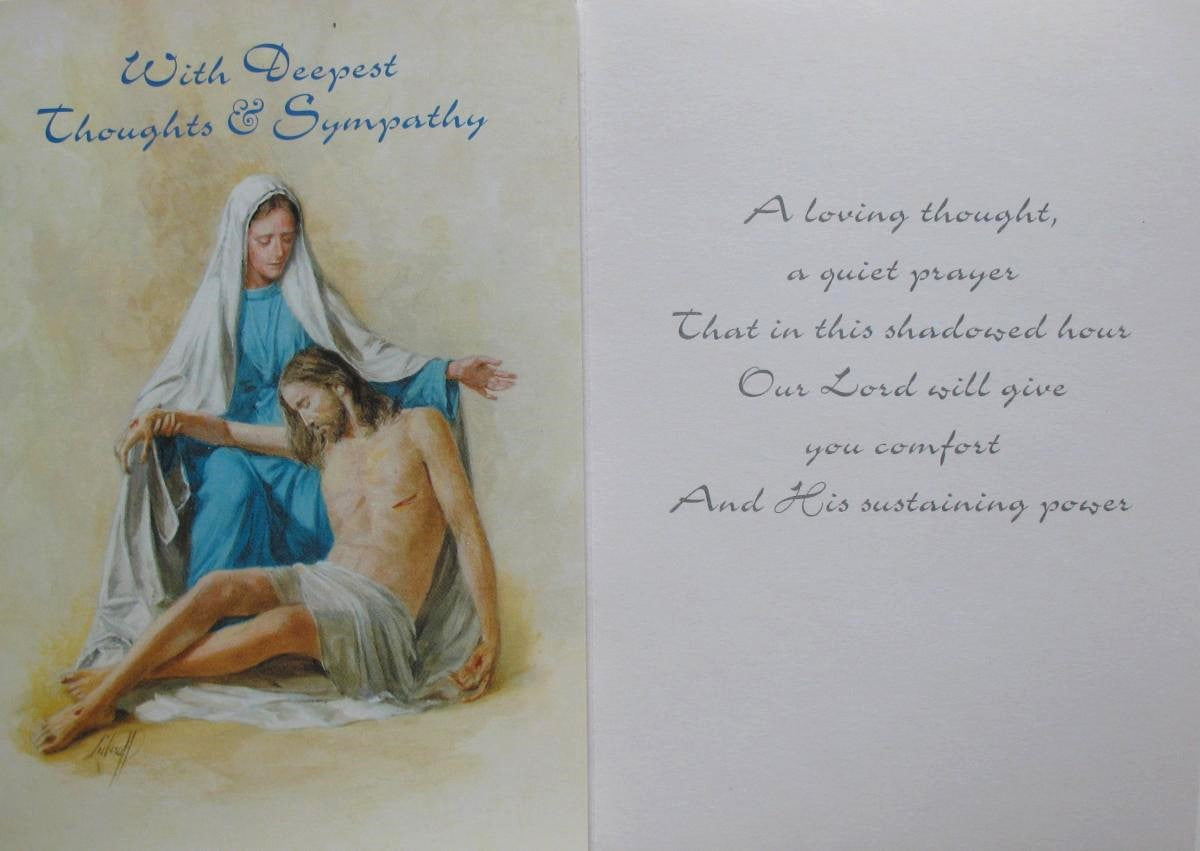 With Deepest
Thoughts & Sympathy
A loving thought,
a quiet prayer
That in this shadowed hour
Our Lord will give
you comfort
And His sustaining power